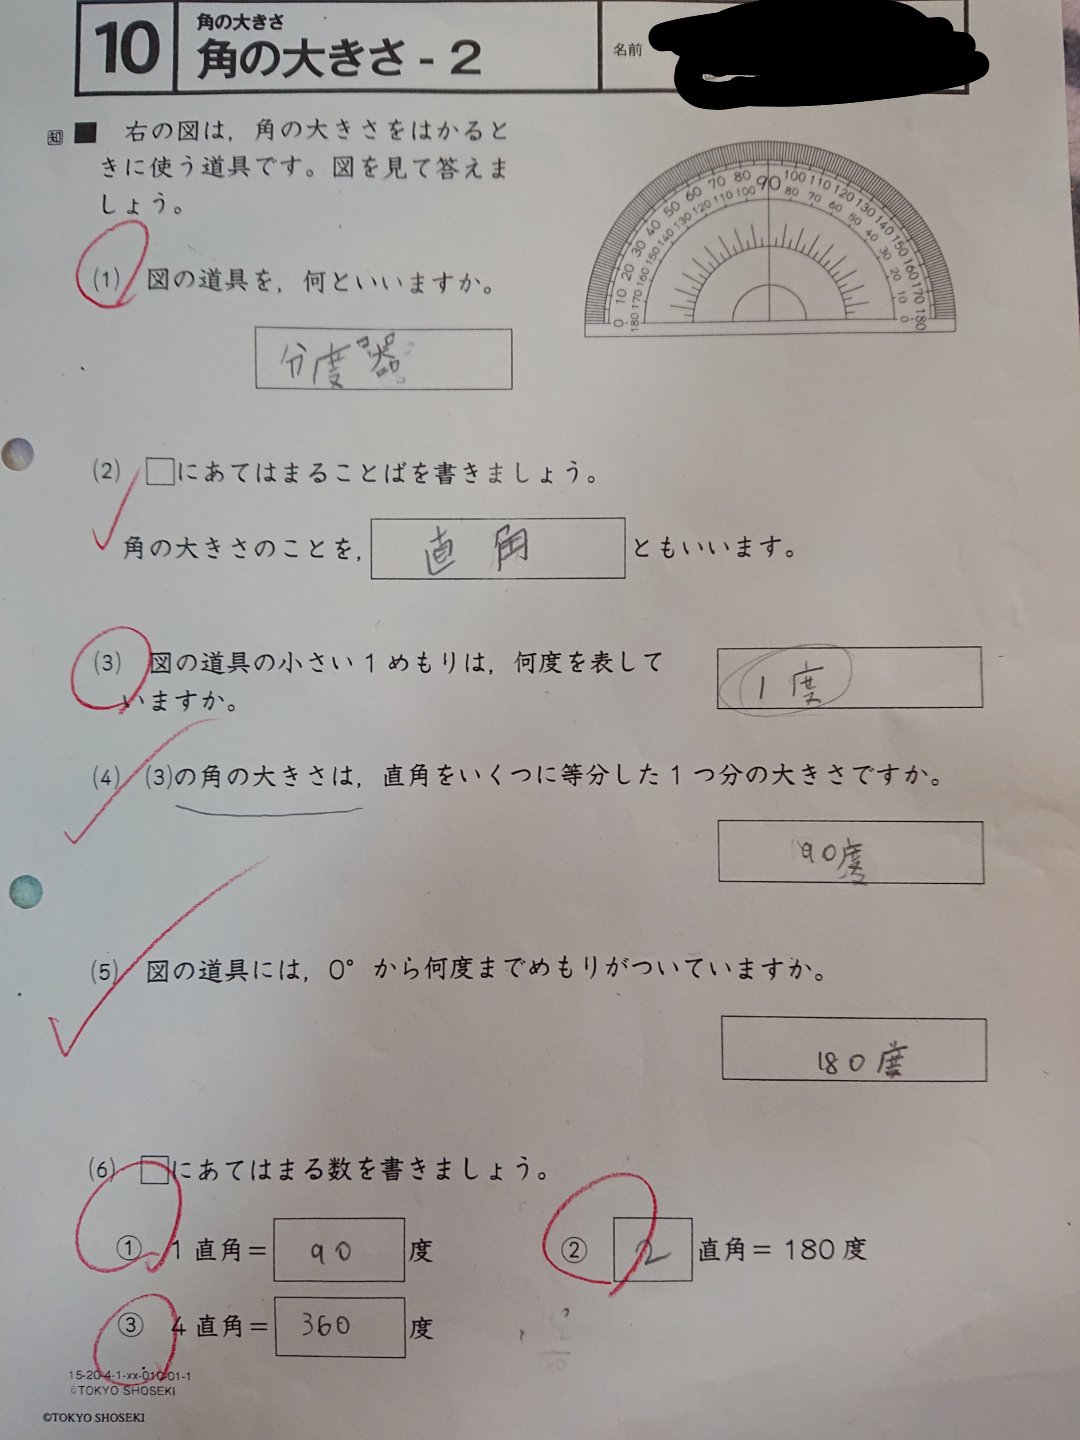 10
角の大きさ
角の大きさ - 2
名前
知 ■ 右の図は，角の大きさをはかると
きに使う道具です。図を見て答えま
しょう。
0 10 20 30 40 50 60 70 80 90 100 110 120 130 140 150 160 170 180
180 170 160 150 140 130 120 110 100 80 70 60 50 40 30 20 10 0
(1) 図の道具を，何といいますか。
分度器
(2) □にあてはまることばを書きましょう。
角の大きさのことを，直角ともいいます。
(3) 図の道具の小さい1めもりは，何度を表して
いますか。
1度
(4) (3)の角の大きさは，直角をいくつに等分した1つ分の大きさですか。
90度
(5) 図の道具には，0°から何度までめもりがついていますか。
180度
(6) □にあてはまる数を書きましょう。
① 1直角＝90度 ② 2直角＝180度
③ 4直角＝360度
15-20-4-1-xx-010-01-1
©TOKYO SHOSEKI
©TOKYO SHOSEKI